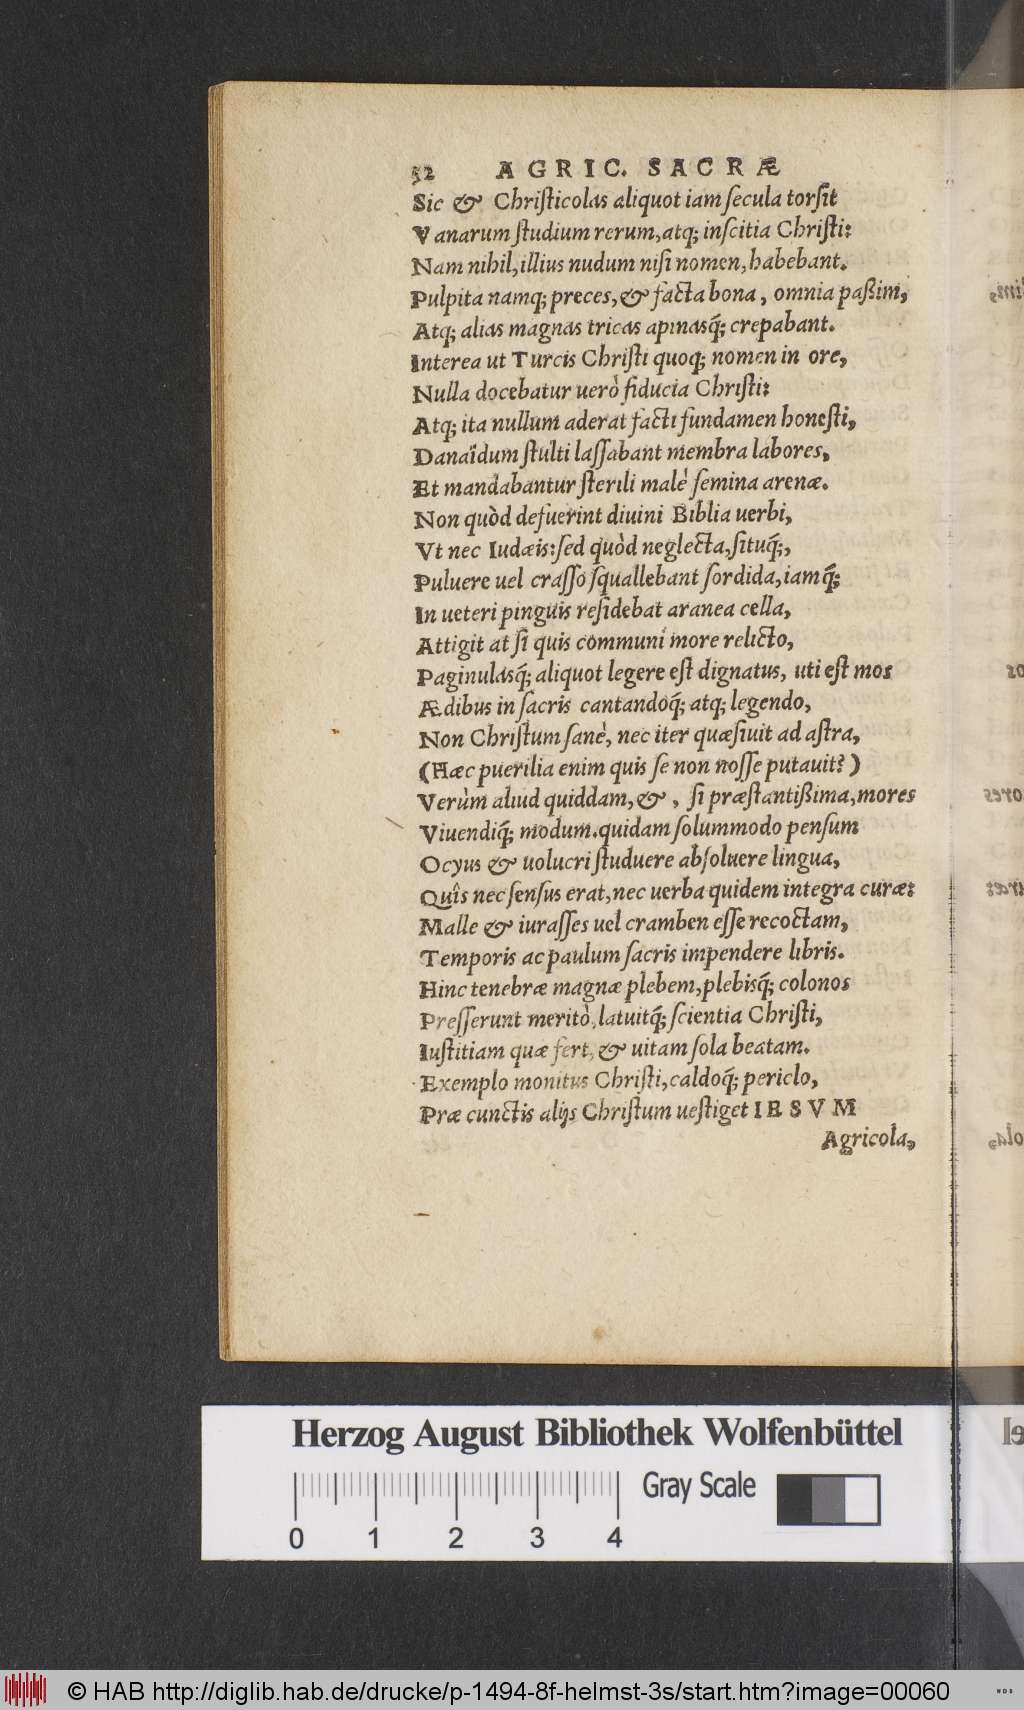 52 AGRIC. SACRÆ
Sic & Chriſticolas aliquot iam ſecula torſit
Vanarum ſtudium rerum, atq; inſcitia Chriſti:
Nam nihil, illius nudum niſi nomen, habebant.
Pulpita namq; preces, & facta bona, omnia paßim,
Atq; alias magnas tricas apinasq́; crepabant.
Interea ut Turcis Chriſti quoq; nomen in ore,
Nulla docebatur uerò fiducia Chriſti:
Atq; ita nullum aderat facti fundamen honeſti,
Danaïdum ſtulti laſſabant membra labores,
Et mandabantur ſterili malè ſemina arenæ.
Non quòd defuerint diuini Biblia uerbi,
Vt nec Iudæis: ſed quòd neglecta, ſituq́;,
Puluere uel craſſo ſquallebant ſordida, iamq́;
In ueteri pinguis reſidebat aranea cella,
Attigit at ſi quis communi more relicto,
Paginulasq́; aliquot legere eſt dignatus, uti eſt mos
Ædibus in ſacris cantandoq́; atq; legendo,
Non Chriſtum ſanè, nec iter quæſiuit ad aſtra,
(Hæc puerilia enim quis ſe non noſſe putauit?)
Verùm aliud quiddam, &, ſi præſtantißima, mores
Viuendiq́; modum. quidam ſolummodo penſum
Ocyus & uolucri ſtuduere abſoluere lingua,
Quîs nec ſenſus erat, nec uerba quidem integra curæ:
Malle & iuraſſes uel cramben eſſe recoctam,
Temporis ac paulum ſacris impendere libris.
Hinc tenebræ magnæ plebem, plebisq́; colonos
Preſſerunt meritò, latuitq́; ſcientia Chriſti,
Iuſtitiam quæ fert, & uitam ſola beatam.
Exemplo monitus Chriſti, caldoq́; periclo,
Præ cunctis alijs Chriſtum ueſtiget IESVM
Agricola,
Herzog August Bibliothek Wolfenbüttel
Gray Scale
0 1 2 3 4
© HAB http://diglib.hab.de/drucke/p-1494-8f-helmst-3s/start.htm?image=00060